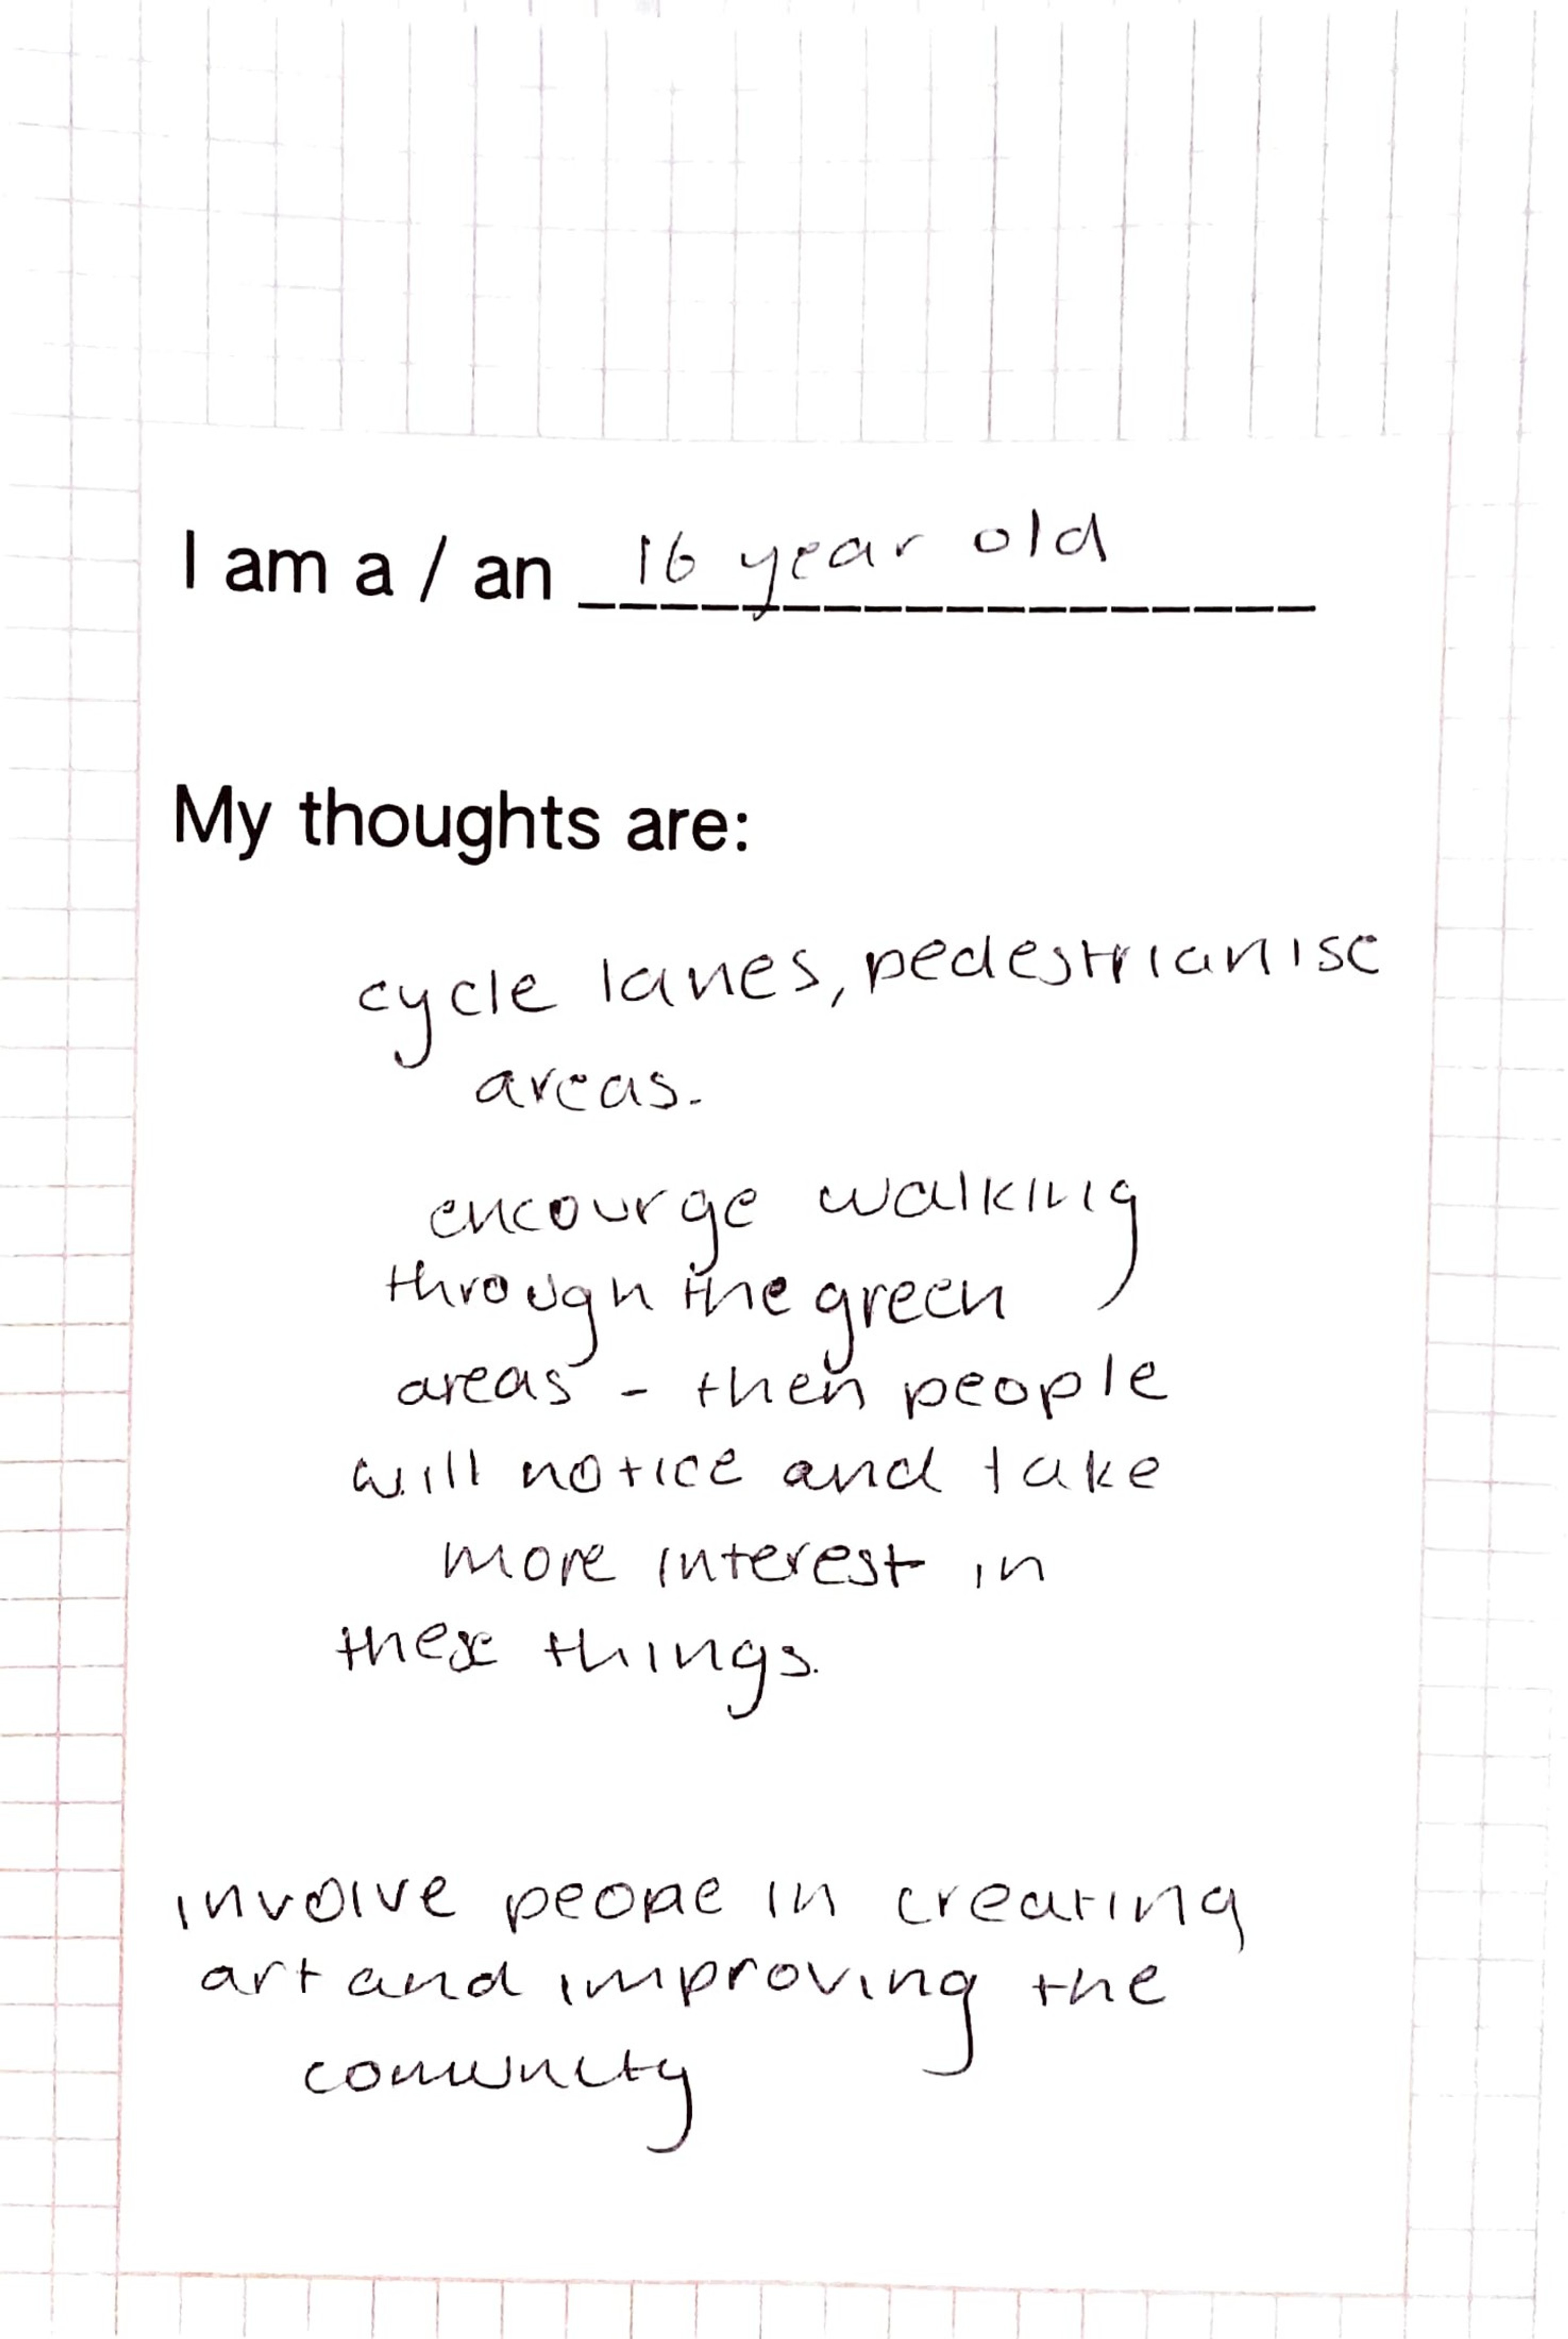 I am a / an 16 year old
My thoughts are:
cycle lanes, pedestrianise
areas.
encourge walking
through the green
areas - then people
will notice and take
more interest in
these things.
involve people in creating
art and improving the
comunity